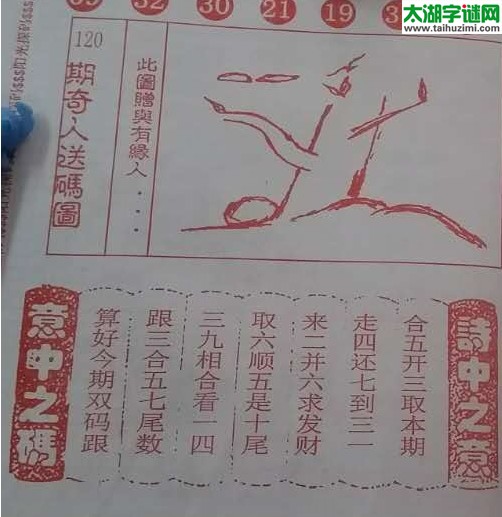 太湖字谜网
www.taihuzimi.com
32
30
21
19
120
期奇人送碼圖
此圖贈與有緣人....
詩中之意
合五开三取本期
走四还七到三一
来二并六求发财
取六顺五是十尾
三九相合看一四
跟三合五七尾数
算好今期双码跟
意中之碼